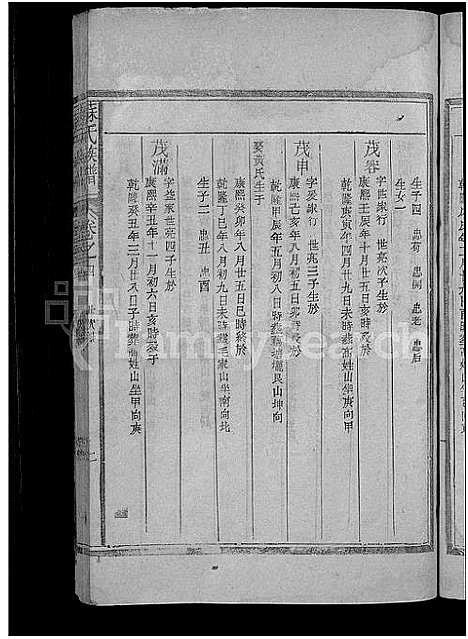 生子四 忠荷 忠桐 忠老 忠后
生女一
茂容 字世泉行 世亮次子生於
康熙壬辰年十月廿五日亥時歿於
乾隆庚寅年四月廿九日未時葬高姓山坐庚向甲
茂申 字 行 世亮三子生於
康熙乙亥年八月初五日亥時歿於
乾隆甲辰年五月初八日時葬 艮山坤向
娶黃氏生于
康熙癸卯年八月廿五日巳時終於
乾隆丁巳年八月初九日未時葬毛家山坐南向北
生子二 忠丑 忠酉
茂滿 字益家世亮四子生於
康熙辛丑年十一月初六日亥時歿于
乾隆癸丑年三月廿八日子時葬高姓山坐甲向庚
蘇氏族譜 卷之四
FamilySearch